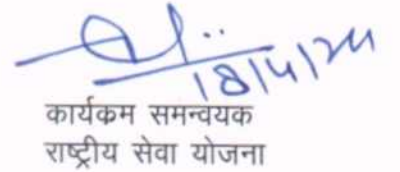 18/4/24
कार्यक्रम समन्वयक
राष्ट्रीय सेवा योजना